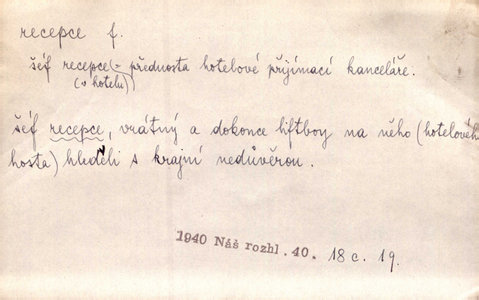 recepce f.
šéf recepce (= přednosta hotelové přijímací kanceláře.
(v hotelu))
šéf recepce, vrátný a dokonce liftboy na něho (hotelového
hosta) hleděli s krajní nedůvěrou.
1940 Náš rozhl. 40. 18 c. 19.